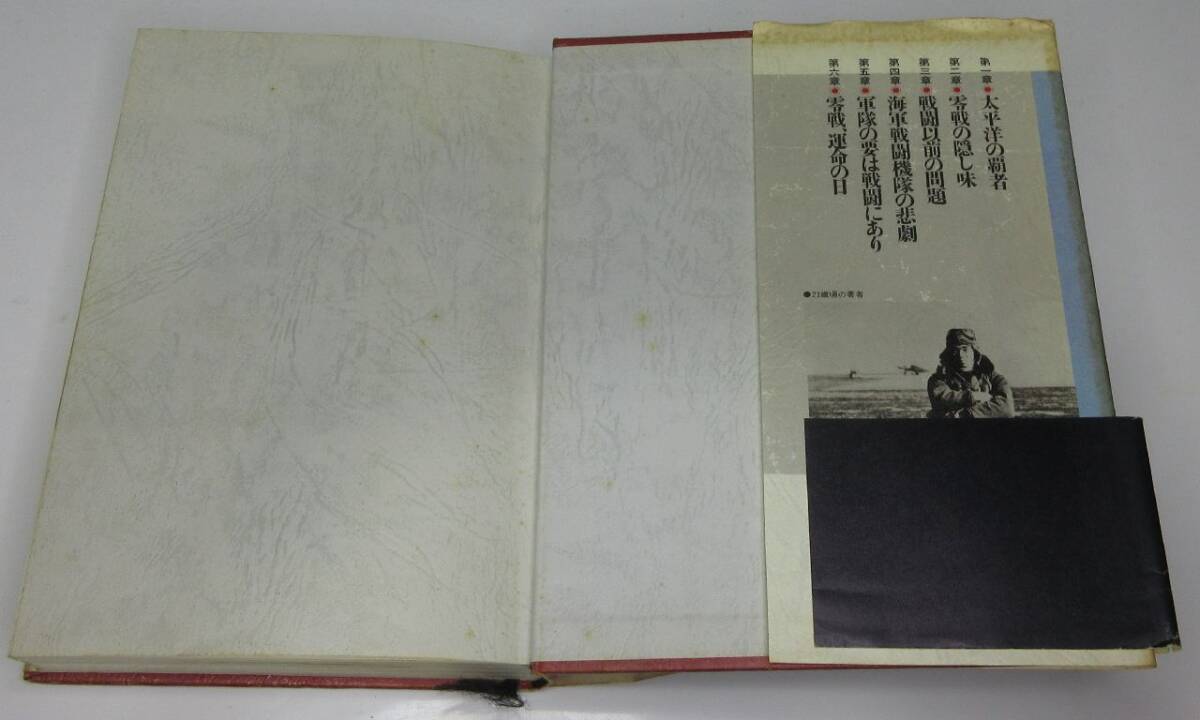 第一章●太平洋の覇者
第二章●零戦の隠し味
第三章●戦闘以前の問題
第四章●海軍戦闘機隊の悲劇
第五章●軍隊の要は戦闘にあり
第六章●零戦、運命の日
●21歳頃の著者